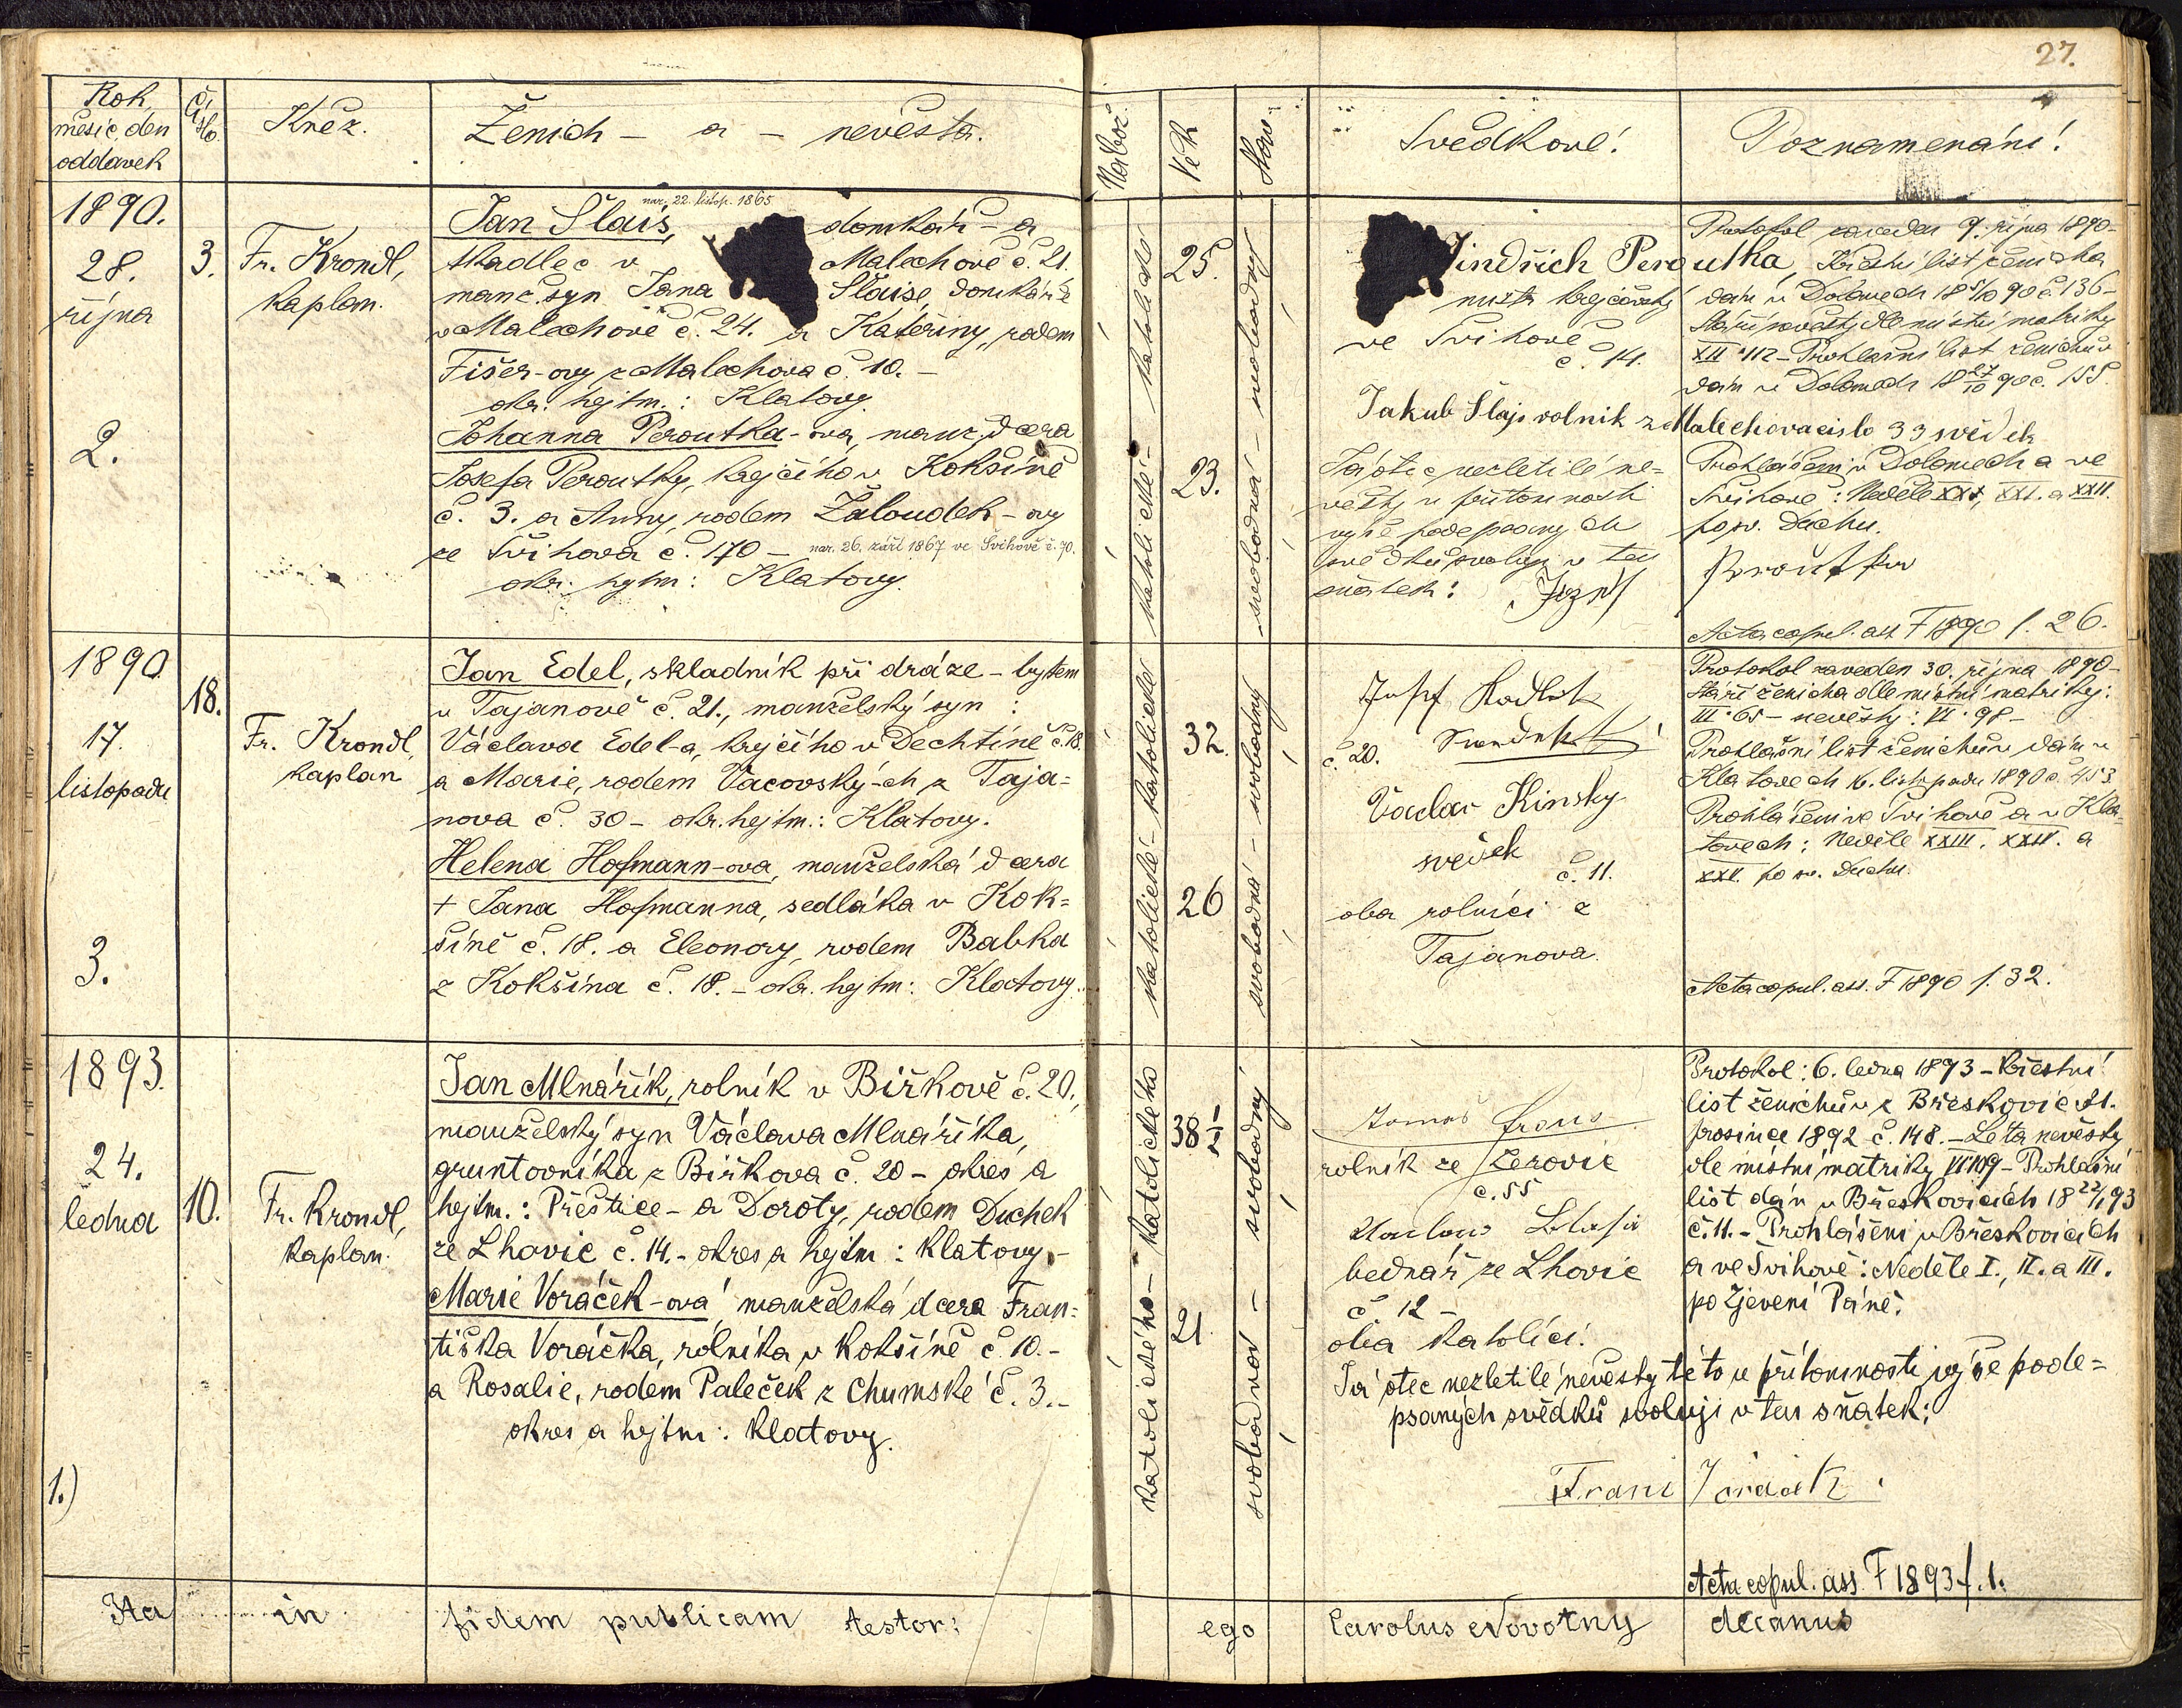 27.
Rok, měsíc, den oddavek
Číslo.
Kněz.
Ženich – a – nevěsta.
Nábož.
Věk
Stav.
Svědkové!
Poznamenání!
1890.
28.
října
2.
3.
Fr. Krondl,
kaplan.
nar. 22. listop. 1865
Jan Šlais, domkář – a
tkadlec v Malechově č. 21.
manž. syn Jana Šlaise, domkáře
v Malechově č. 24. a Kateřiny, rodem
Fišer-ovy z Malechova č. 10. –
okr. hejtm.: Klatovy.
Johanna Peroutka-ova, manž. dcera
Josefa Peroutky, krejčího v Kokšíně
č. 3. a Anny, rodem Žaloudek-ovy
ze Švihova č. 170 – nar. 26. září 1867 ve Švihově č. 70.
okr. hejtm: Klatovy.
katolické – katolické
25.
23.
svobodná – svobodný
Jindřich Peroutka
mistr krejčovský
ve Švihově
č. 14.
Jakub Šlajs rolník z Malechova cislo 33 svědek
Já otec nezletilé ne=
věsty u přítomnosti
výše podepsaných
svědků svoluji v ten
sňatek:
Protokol zaveden 9. října 1890 –
Křestní list ženicha
dán v Dolanech 18 5/10 90 č. 136 –
Stáří nevěsty dle místní matriky
XII • 112 – Prohlašní list ženichův
dán v Dolanech 18 27/10 90 č. 155.
Prohlášeni v Dolanech a ve
Švihově: Neděle XXI, XXI. a XXII.
po sv. Duchu.
Acta copul. ass F 1890 f. 26.
1890
17.
listopadu
3.
18.
Fr. Krondl,
kaplan
Jan Edel, skladník při dráze – bytem
v Tajanově č. 21., manželský syn :
Václava Edel-a, krejčího v Dechtíně č. 18.
a Marie, rodem Vacovský-ch z Taja=
nova č. 30 – okr. hejtm.: Klatovy.
Helena Hofmann-ova, manželská dcera
+ Jana Hofmanna, sedláka v Kok=
šíně č. 18. a Eleonory, rodem Babka
z Kokšína č. 18. – okr. hejtm: Klatovy.
katolické – katolické
32.
26
svobodná – svobodný
č. 20.
Václav Kinsky
svědek
č. 11.
oba rolníci z
Tajanova.
Protokol zaveden 30. října 1890 –
Stáří ženicha dle místní matriky:
III • 65 – nevěsty: VI • 98 –
Prohlašní list ženichův dán v
Klatovech 16. listopadu 1890 č. 453.
Prohlášeni ve Švihově a v Kla=
tovech: Neděle XXIII. XXIV. a
XXV. po sv. Duchu.
Acta copul. ass. F 1890 f. 32.
1893.
24.
ledna
1.)
10.
Fr. Krondl,
kaplan.
Jan Mlnářík, rolník v Biřkově č. 20.,
manželský syn Václava Mlnáříka,
gruntovníka z Biřkova č. 20 – okres a
hejtm.: Přeštice – a Doroty, rodem Duchek
ze Lhovic č. 14. – okres a hejtm: Klatovy –
Marie Voráček-ová manželská dcera Fran=
tiška Voráčka, rolníka v Kokšíně č. 10. –
a Rosalie, rodem Paleček z Chumské č. 3. –
okres a hejtm: Klatovy.
katolického – katolického
38 1/2
21.
svobodná – svobodný
rolník ze Žerovic
č. 55
bednář ze Lhovic
č 12 –
oba katolíci.
Já otec nezletilé nevěsty této u přítomnosti výše pode=
psaných svědků svoluji v ten sňatek:
Protokol: 6. ledna 1893 – Křestní
list ženichův z Břeskovic 21.
prosince 1892 č. 148. – Léta nevěsty
dle místní matriky VI 109 – Prohlašní
list dán v Břeskovicích 18 22/1 93
č. 11. – Prohlášeni v Břeskovicích
a ve Švihově: Neděle I., II. a III.
po Zjevení Páně.
Acta copul. ass. F 1893 f. 1.
Ita in fidem publicam testor: ego Carolus Novotny decanus